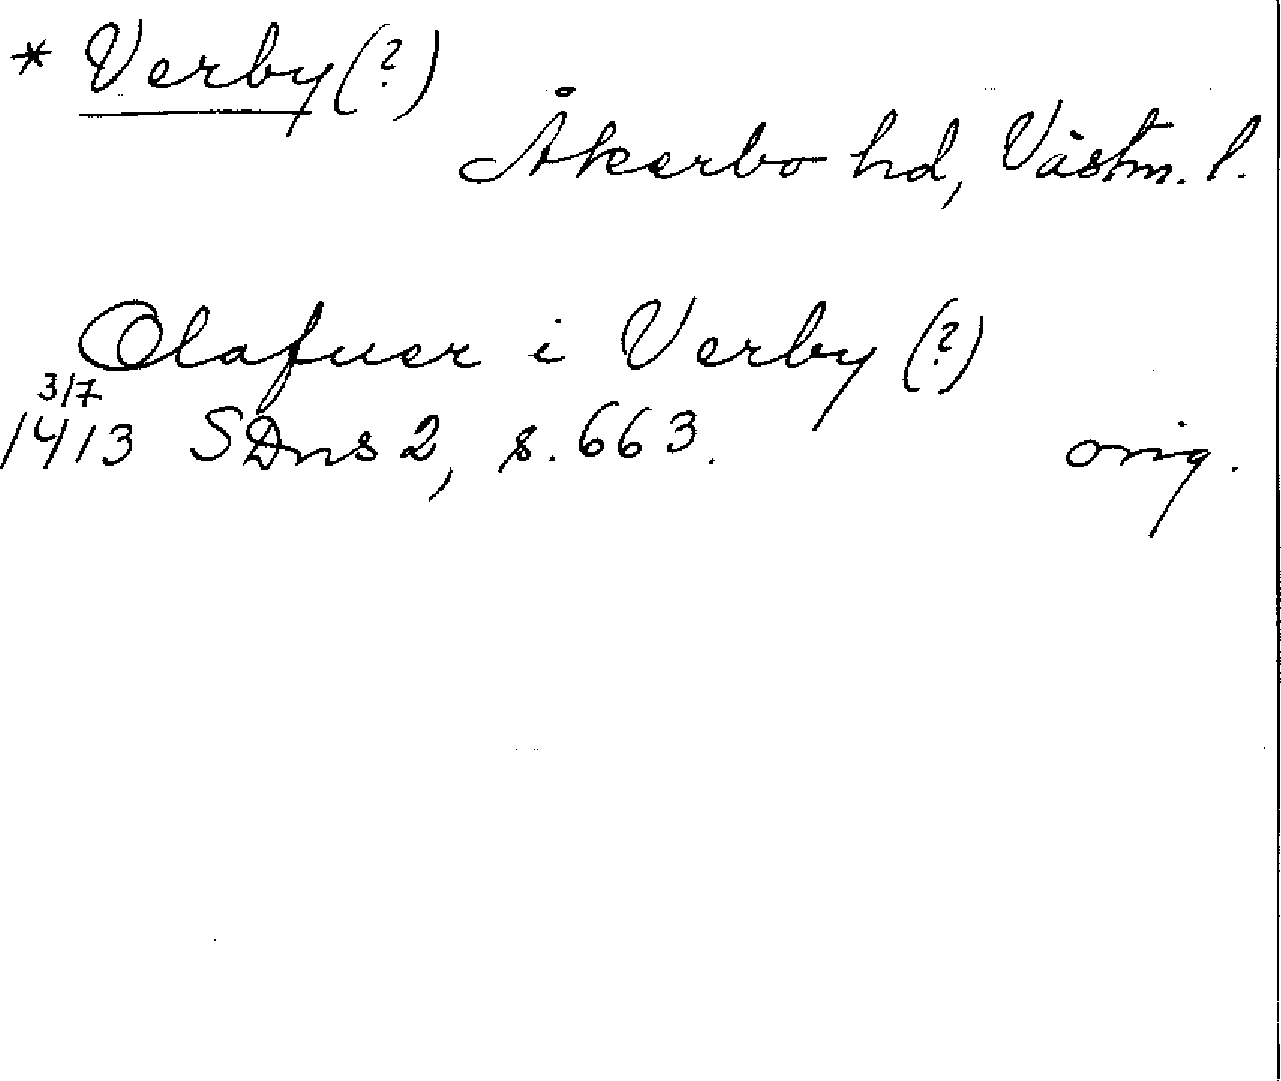 * Verby (?)
Åkerbo hd, Västm. l.
Olafuer i Verby (?)
3/7
1413 SDns 2, s. 663. orig.